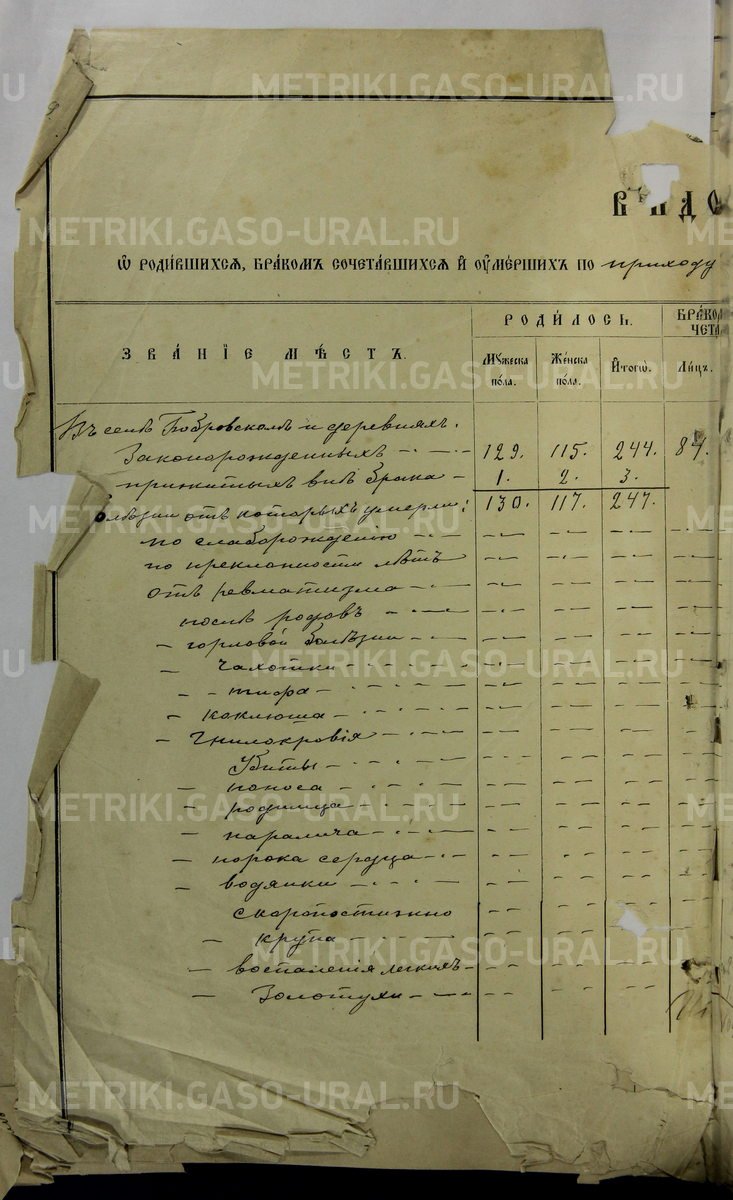 В ДО
Ѡ РОДИ́ВШИХСЯ, БРА́КОМЪ СОЧЕТА́ВШИХСЯ И҆ ОУ҆МЕ́РШИХЪ ПО приходу
ЗВА́НІЕ МѢ́СТЪ. РОДИ́ЛОСЬ. БРА́КО ЧЕТА
Мꙋ́жеска по́ла. Же́нска по́ла. И҆тогѡ̀. Ли́цъ.
Въ селѣ Бобровскомъ и деревняхъ.
Законорожденныхъ 129. 115. 244. 84.
прижитыхъ внѣ брака 1. 2. 3.
Болѣзни отъ которыхъ умерли: 130. 117. 247.
по слаборожденію
по преклонности лѣтъ
отъ ревматизма
послѣ родовъ
— горловой болѣзни
— чахотки
— тифа
— коклюша
— Гнилокровія
Убиты
— поноса
— родимца
— паралича
— порока сердца
— водянки
скоропостижно
— крупа
— воспаленія легкихъ
— Золотухи
METRIKI.GASO-URAL.RU